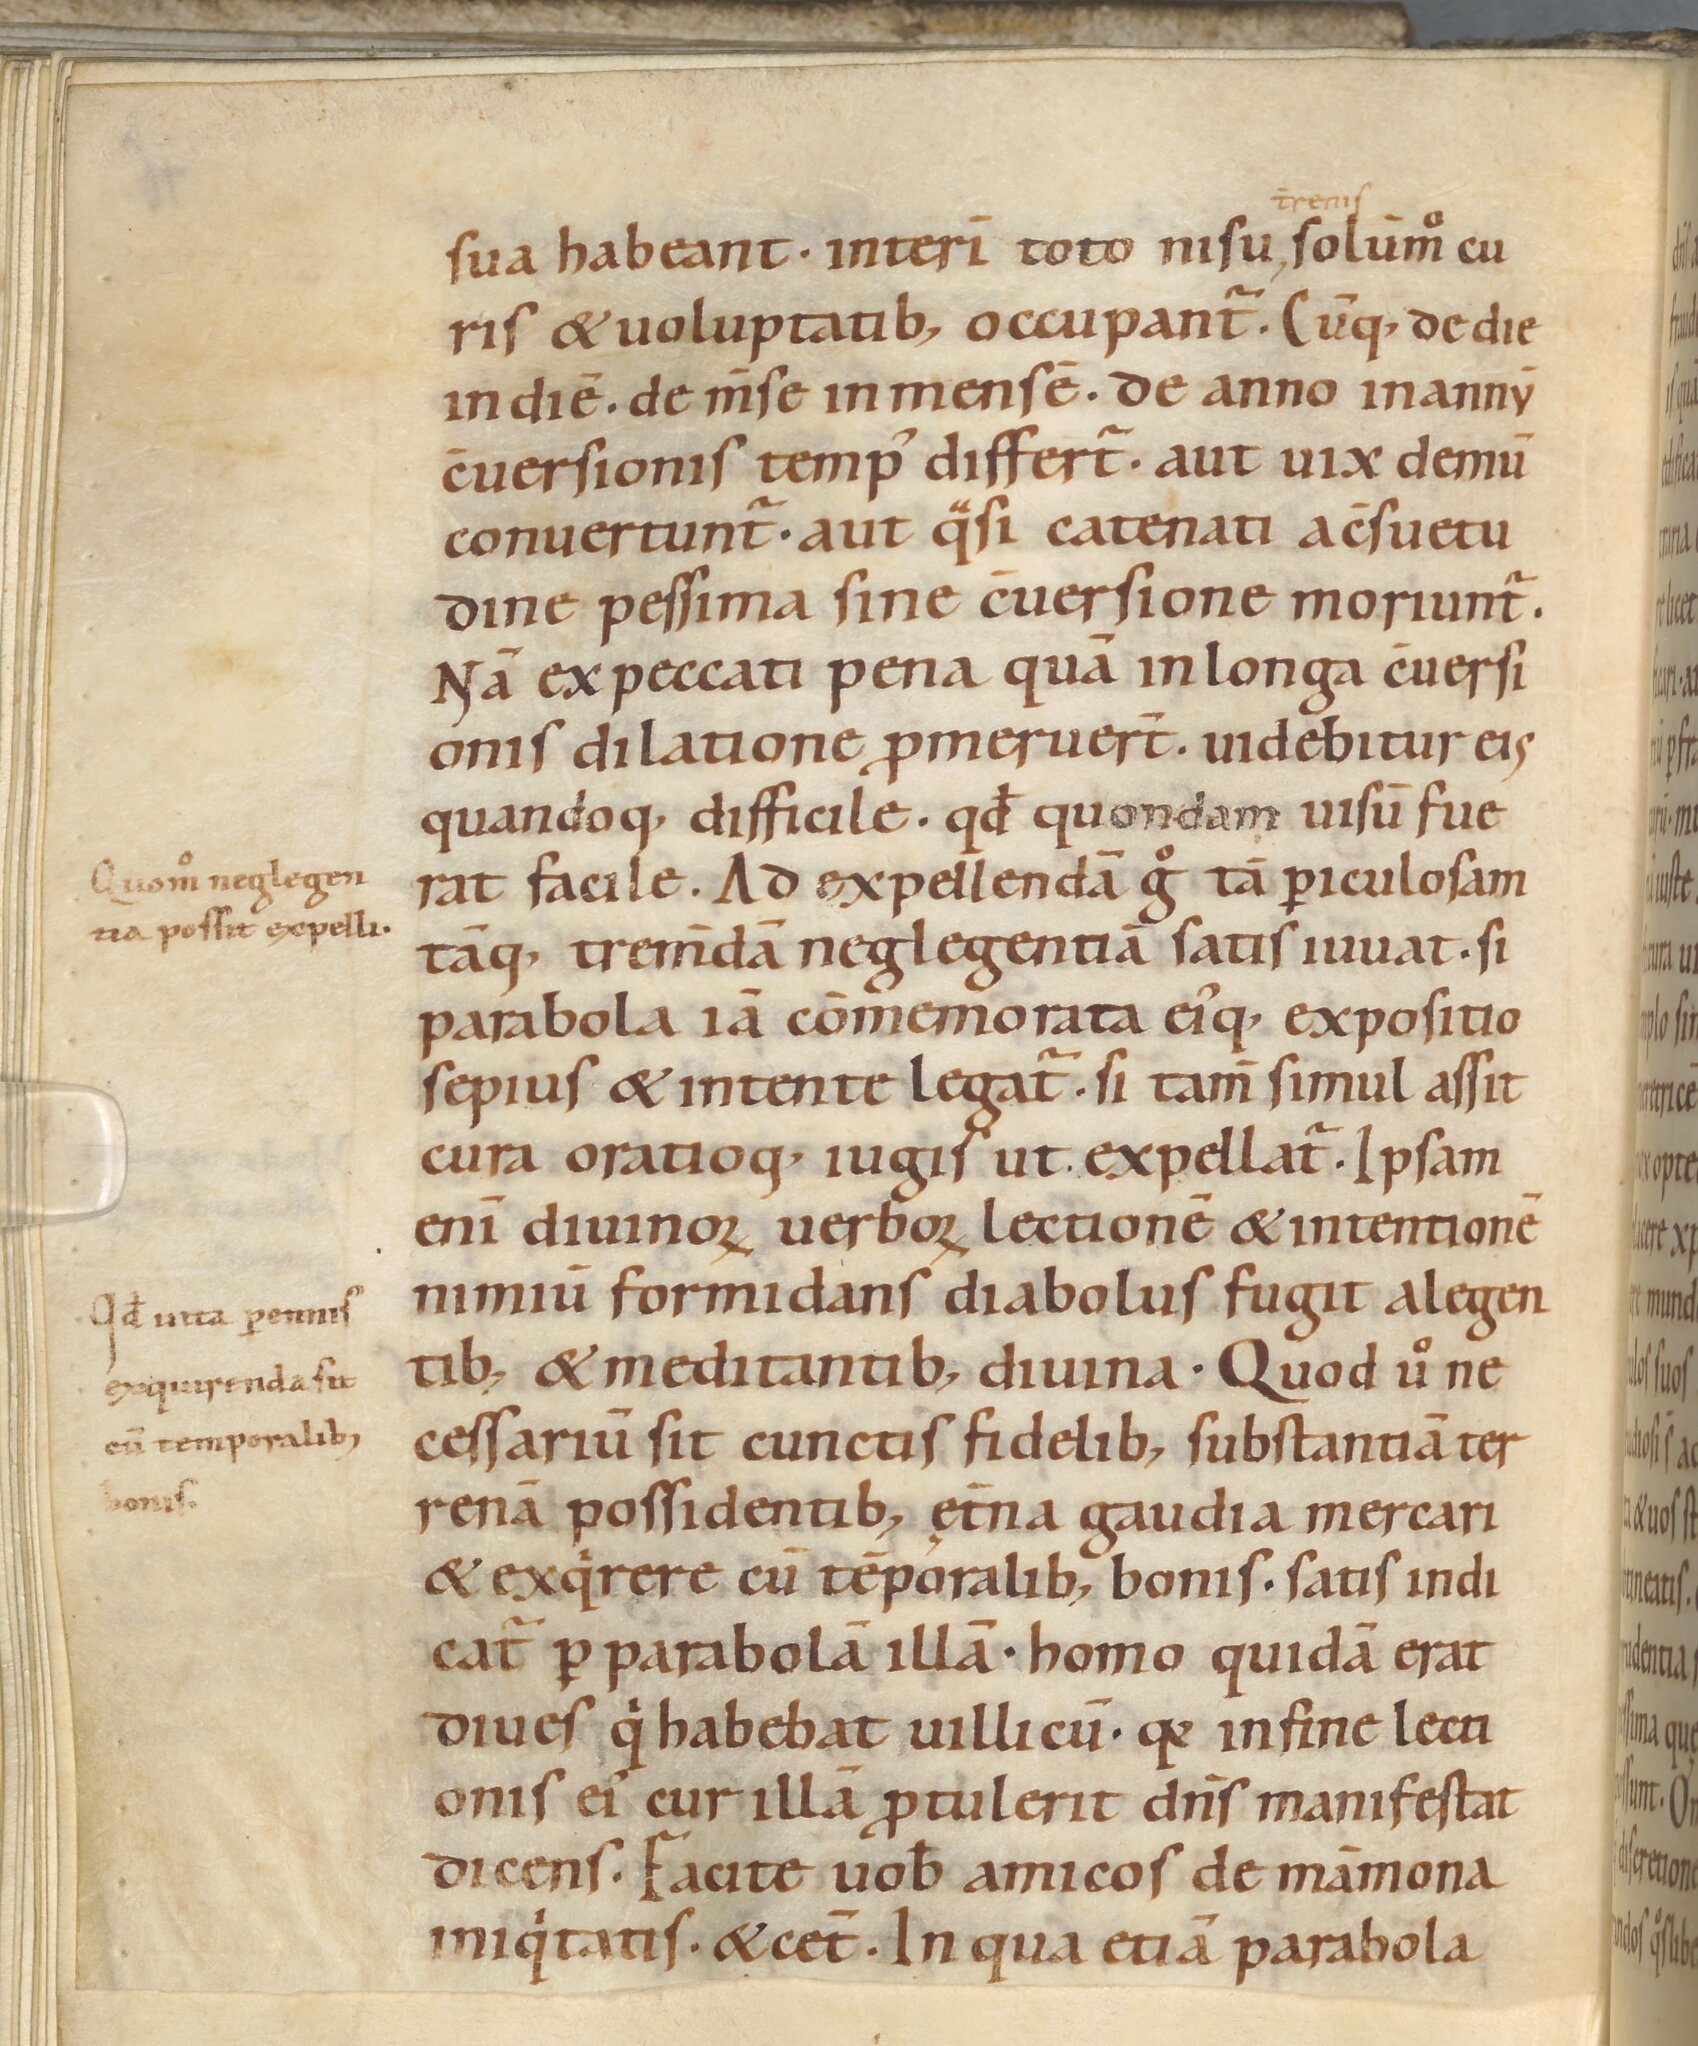 t̄renis
sua habeant · interī toto nisu, solūm̊ cu
ris & uoluptatib; occupant᷒. Cūq; de die
in diē. de m̄se in mensē. de anno in annū
c̄uersionis temp᾽ differt᷒. aut uix demū
conuertunt᷒. aut q̈si catenati a c̄suetu
dine pessima sine c̄uersione moriunt᷒.
Nā ex peccati pena quā in longa c̄uersi
onis dilatione ꝓmeruer̄t. uidebitur eis
quandoq; difficile. qđ quondam uisū fue
rat facile. Ad expellendā g̊ tā ꝑiculosam
tāq; trem̄dā neglegentiā satis iuuat. si
parabola iā cōmemorata ei᾽q; expositio
sepius & intente legat᷒. si tam̄ simul assit
cura oratioq; iugis ut expellat᷒. Ipsam
enī diuinoꝝ uerboꝝ lectionē & intentionē
nimiū formidans diabolus fugit a legen
tib; & meditantib; diuina. Quod ů ne
cessariū sit cunctis fidelib; substantiā ter
renā possidentib; ęt̄na gaudia mercari
& exq̇rere cū tēporalib; bonis. satis indi
cat᷒ ꝑ parabolā illā. homo quidā erat
diues q̇ habebat uillicū. qꝫ in fine lecti
onis ei᾽ cur illā ꝓtulerit dn̄s manifestat
dicens. Facite uob̄ amicos de māmona
iniq̇tatis. & cet̄. In qua etiā parabola
Quom̊ neglegen
tia possit expelli.
Qđ uita ꝑennis
exquirenda sit
cū temporalib;
bonis.